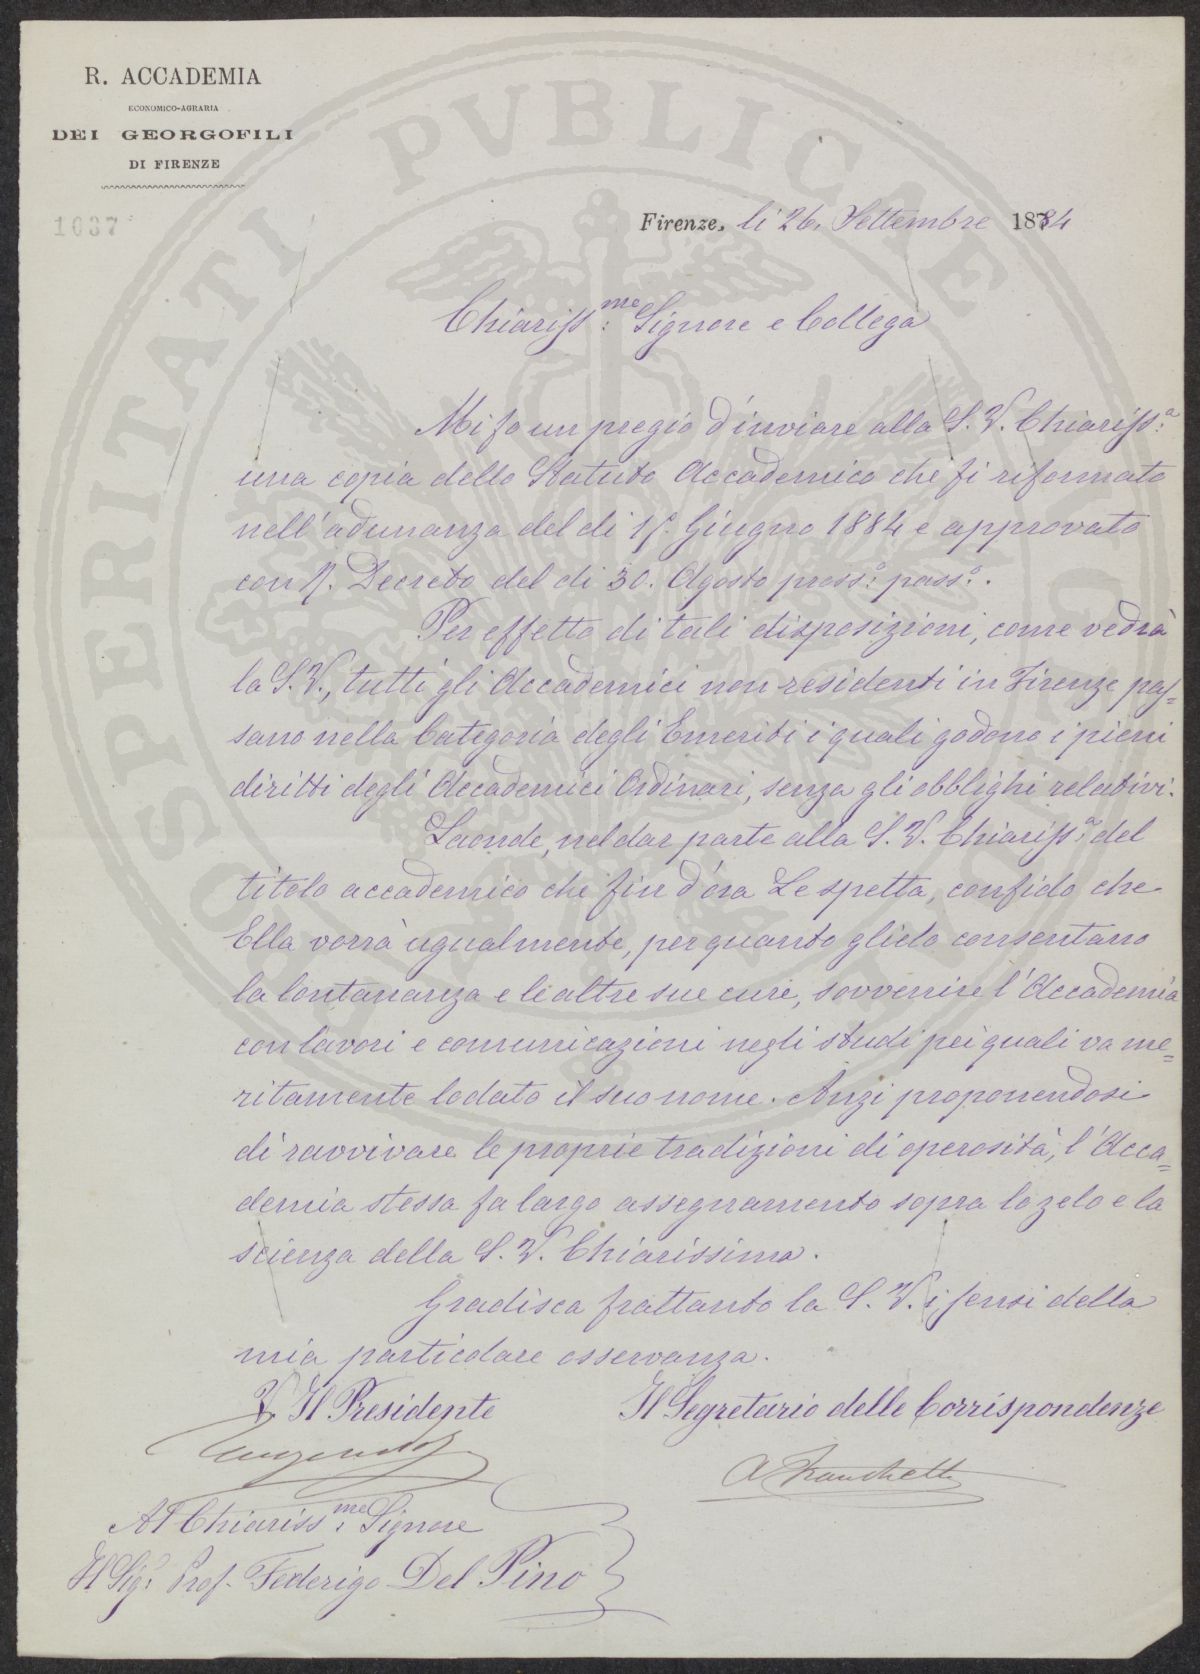 R. ACCADEMIA
ECONOMICO-AGRARIA
DEI GEORGOFILI
DI FIRENZE
1037
PROSPERITATI PVBLICAE
Firenze, li 26. Settembre 1884
Chiariss.me Signore e Collega
Mi fo un pregio d'inviare alla S. V. Chiariss.a
una copia dello Statuto Accademico che fu riformato
nell'adunanza del dì 15. Giugno 1884 e approvato
con R. Decreto del dì 30. Agosto pross.o pass.o.
Per effetto di tali disposizioni, come vedrà
la S. V., tutti gli Accademici non residenti in Firenze pas=
sano nella Categoria degli Emeriti i quali godono i pieni
diritti degli Accademici Ordinari, senza gli obblighi relativi.
Laonde, nel dar parte alla S. V. Chiariss.a del
titolo accademico che fin d'ora Le spetta, confido che
Ella vorrà ugualmente, per quanto glielo consentano
la lontananza e le altre sue cure, sovvenire l'Accademia
con lavori e comunicazioni negli studi pei quali va me=
ritamente lodato il suo nome. Anzi proponendosi
di ravvivare le proprie tradizioni di operosità, l'Acca=
demia stessa fa largo assegnamento sopra lo zelo e la
scienza della S. V. Chiarissima.
Gradisca frattanto la S. V. i sensi della
mia particolare osservanza.
V. Il Presidente
Il Segretario delle Corrispondenze
A Franchetti
Al Chiariss.me Signore
Il Sig.r Prof. Federigo Del Pino